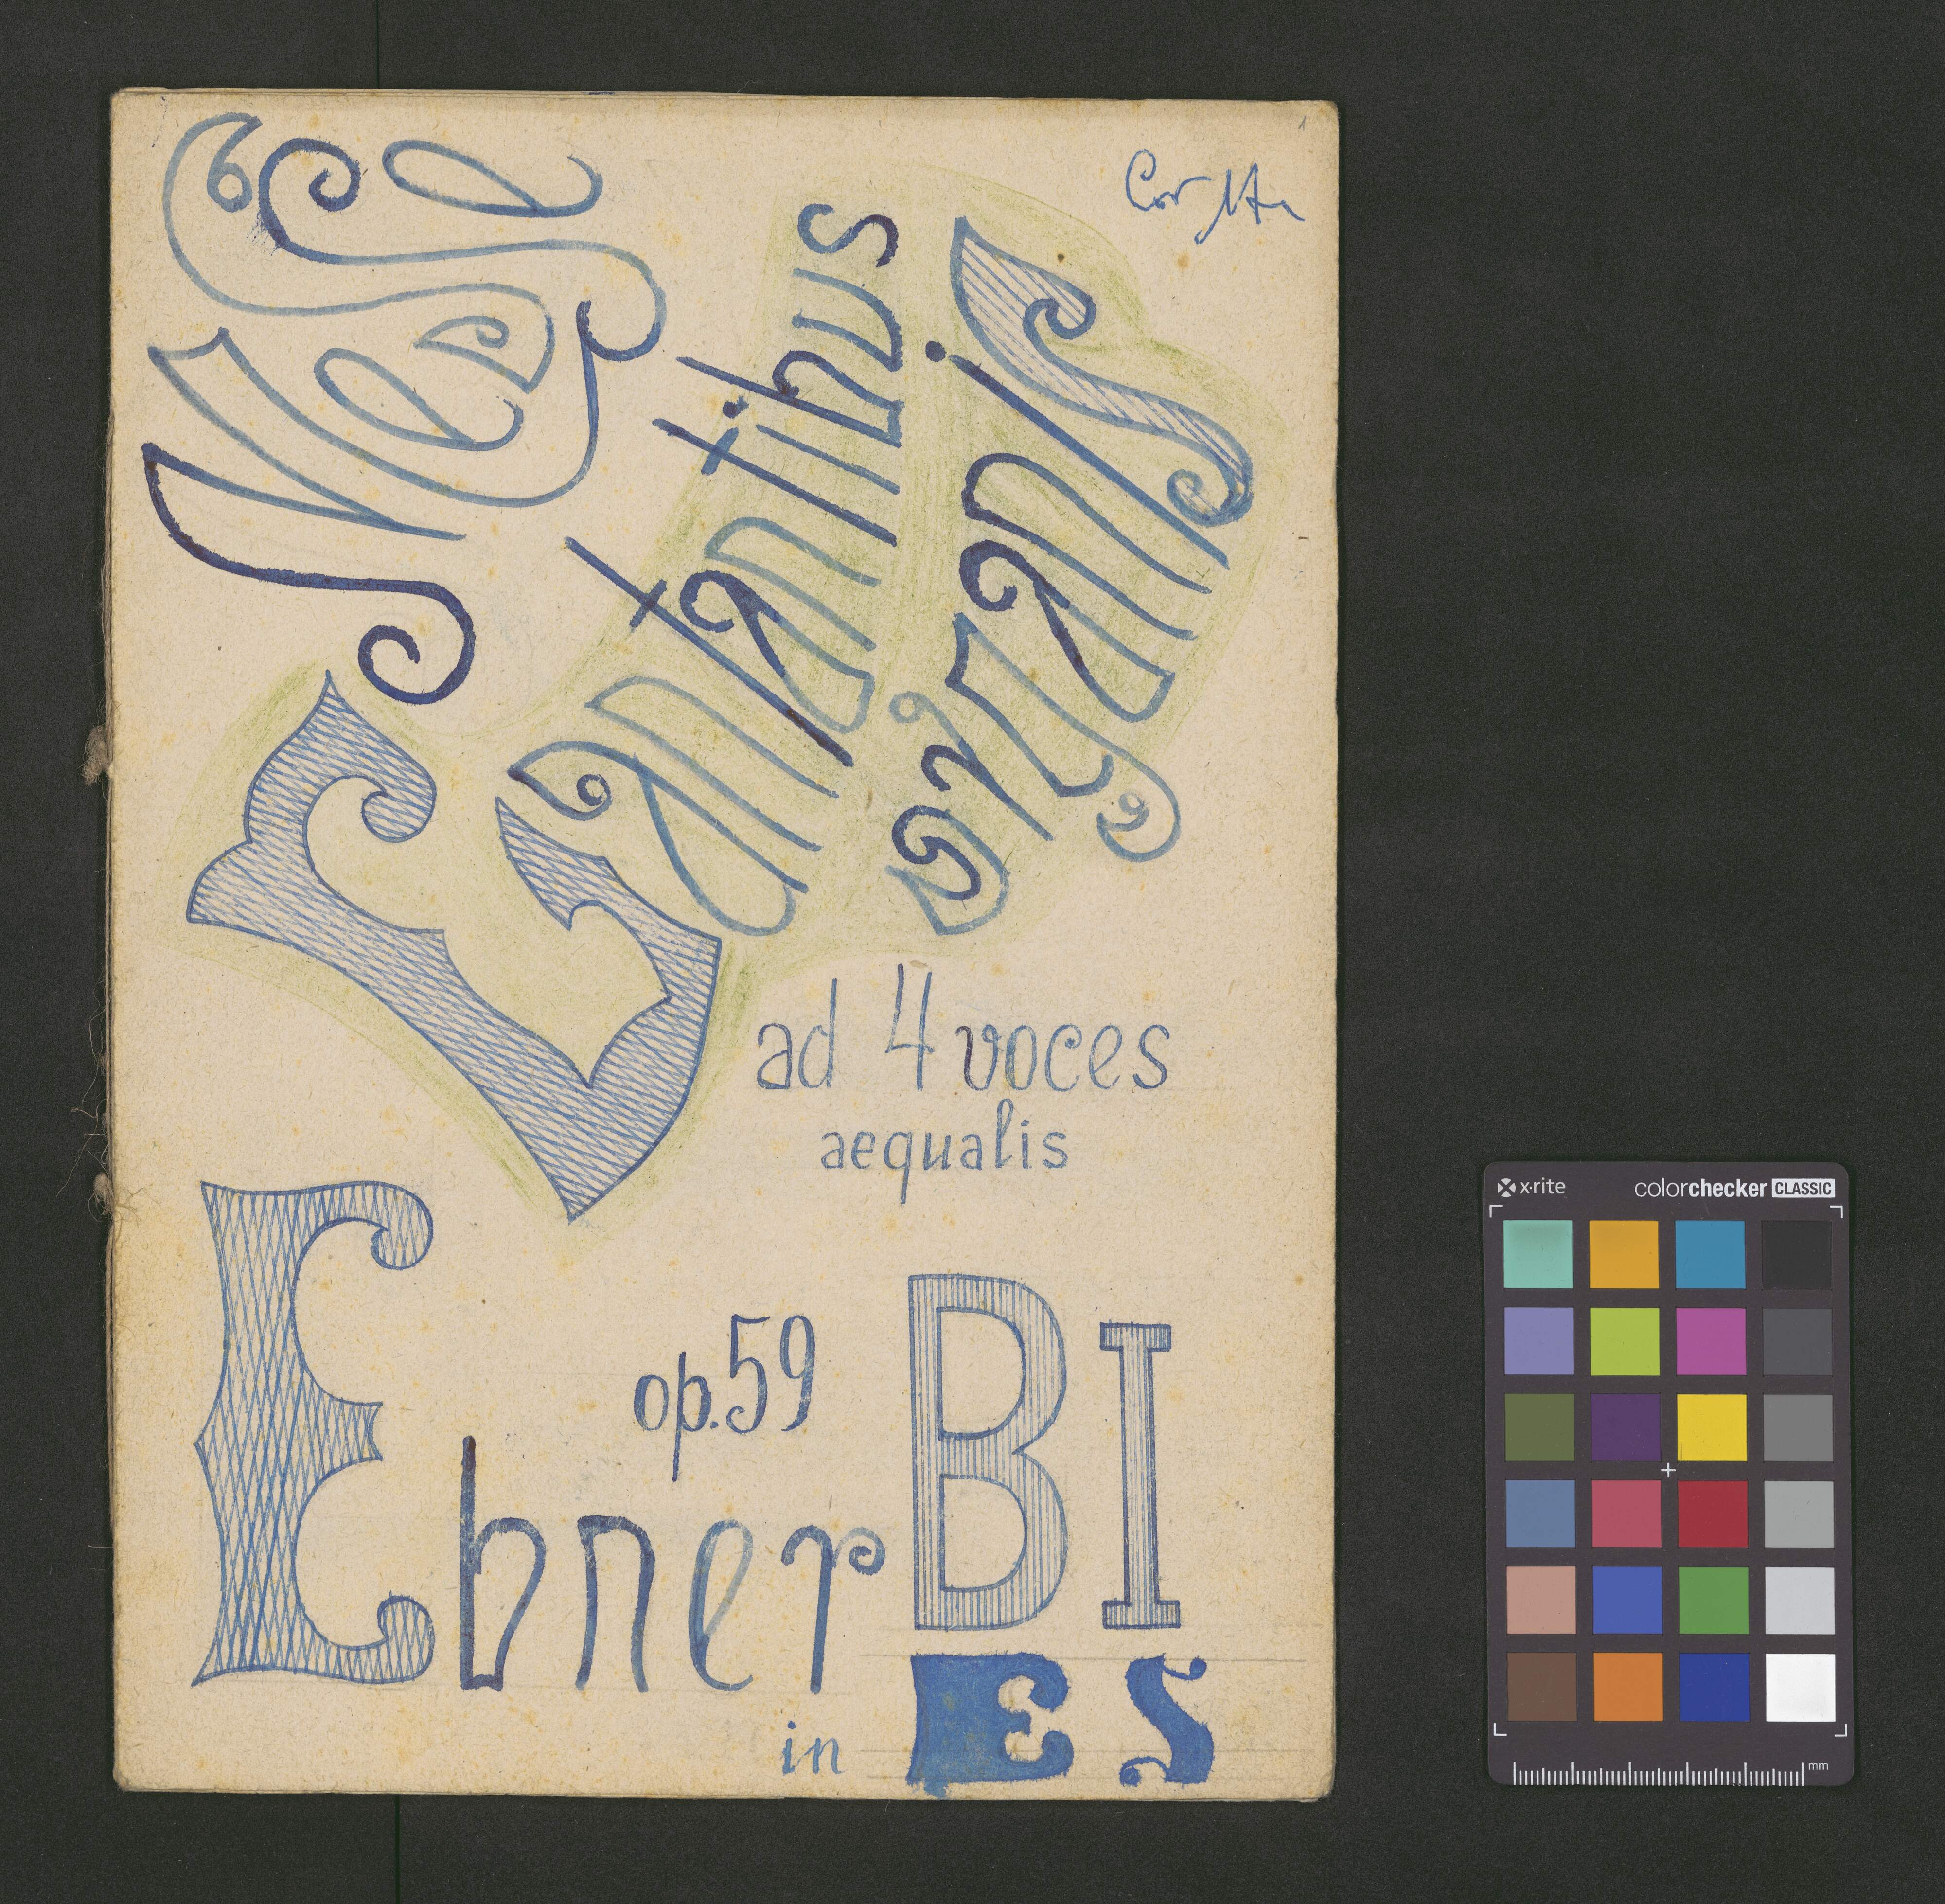 1
Messe
Cantantibus
organis
ad 4 voces
aequalis
op.59
Ebner
BI
in ES
x·rite colorchecker CLASSIC
mm